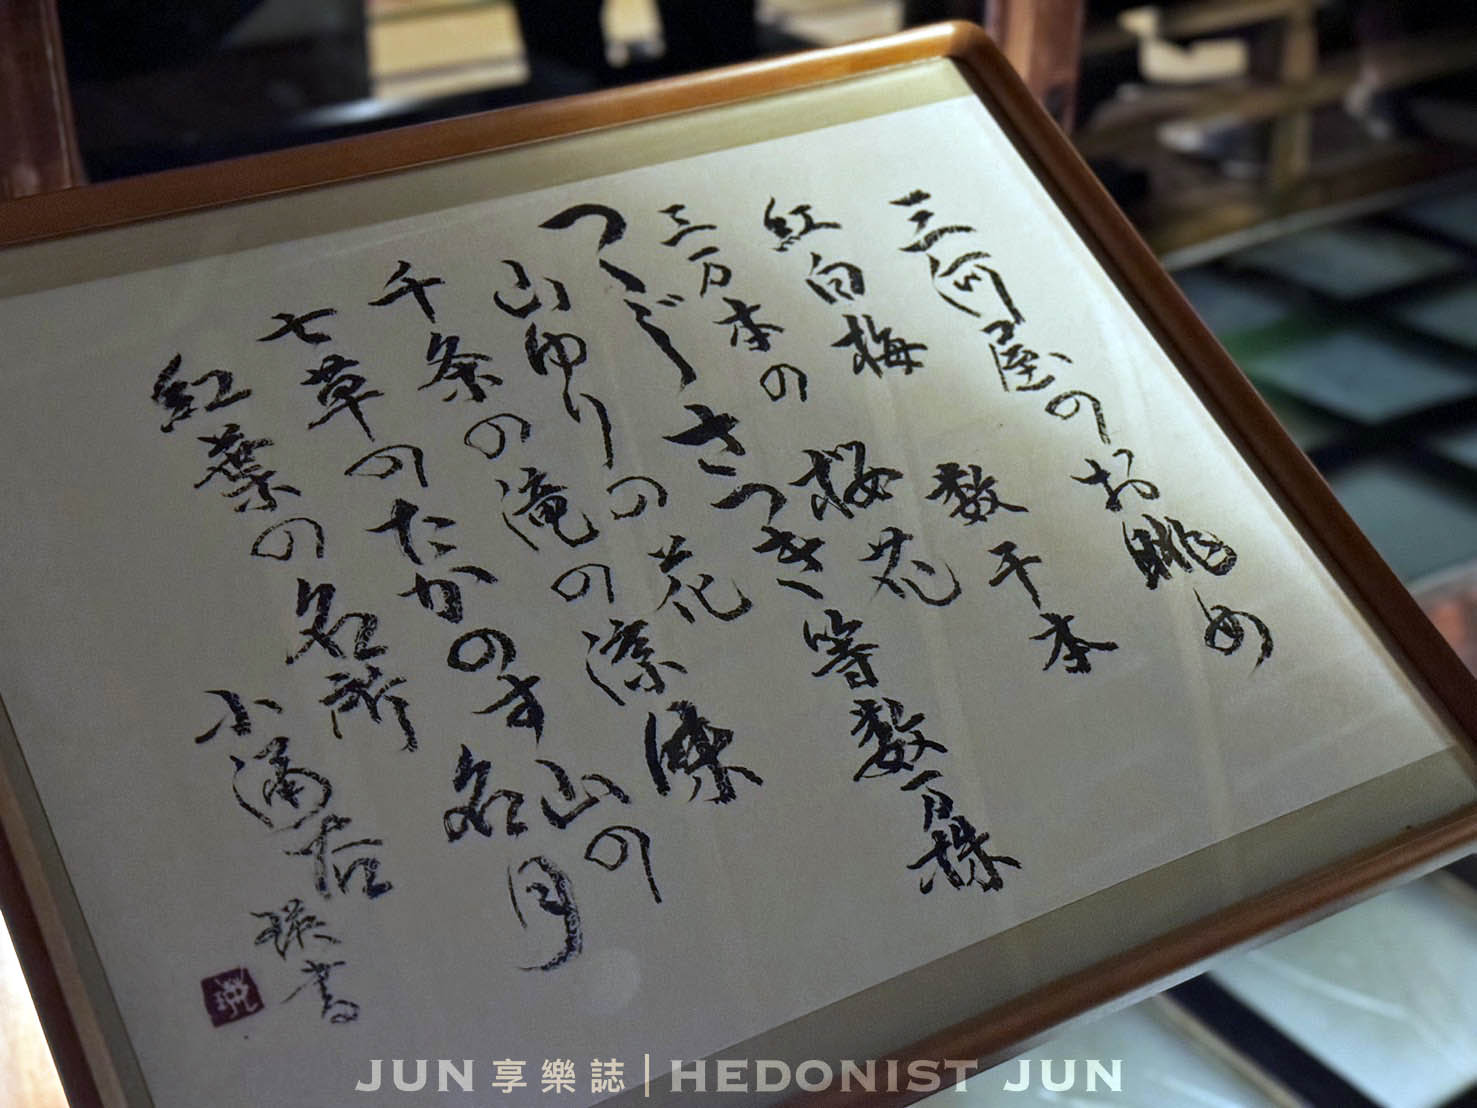 三河屋のお眺め
紅白梅 数千本
三万本の 桜花
つゝじ さつき等数万株
山ゆりの花
千条の滝の
七草のたかのす山の
名月
紅葉の名所 小涌谷
瑛書
JUN 享樂誌 | HEDONIST JUN